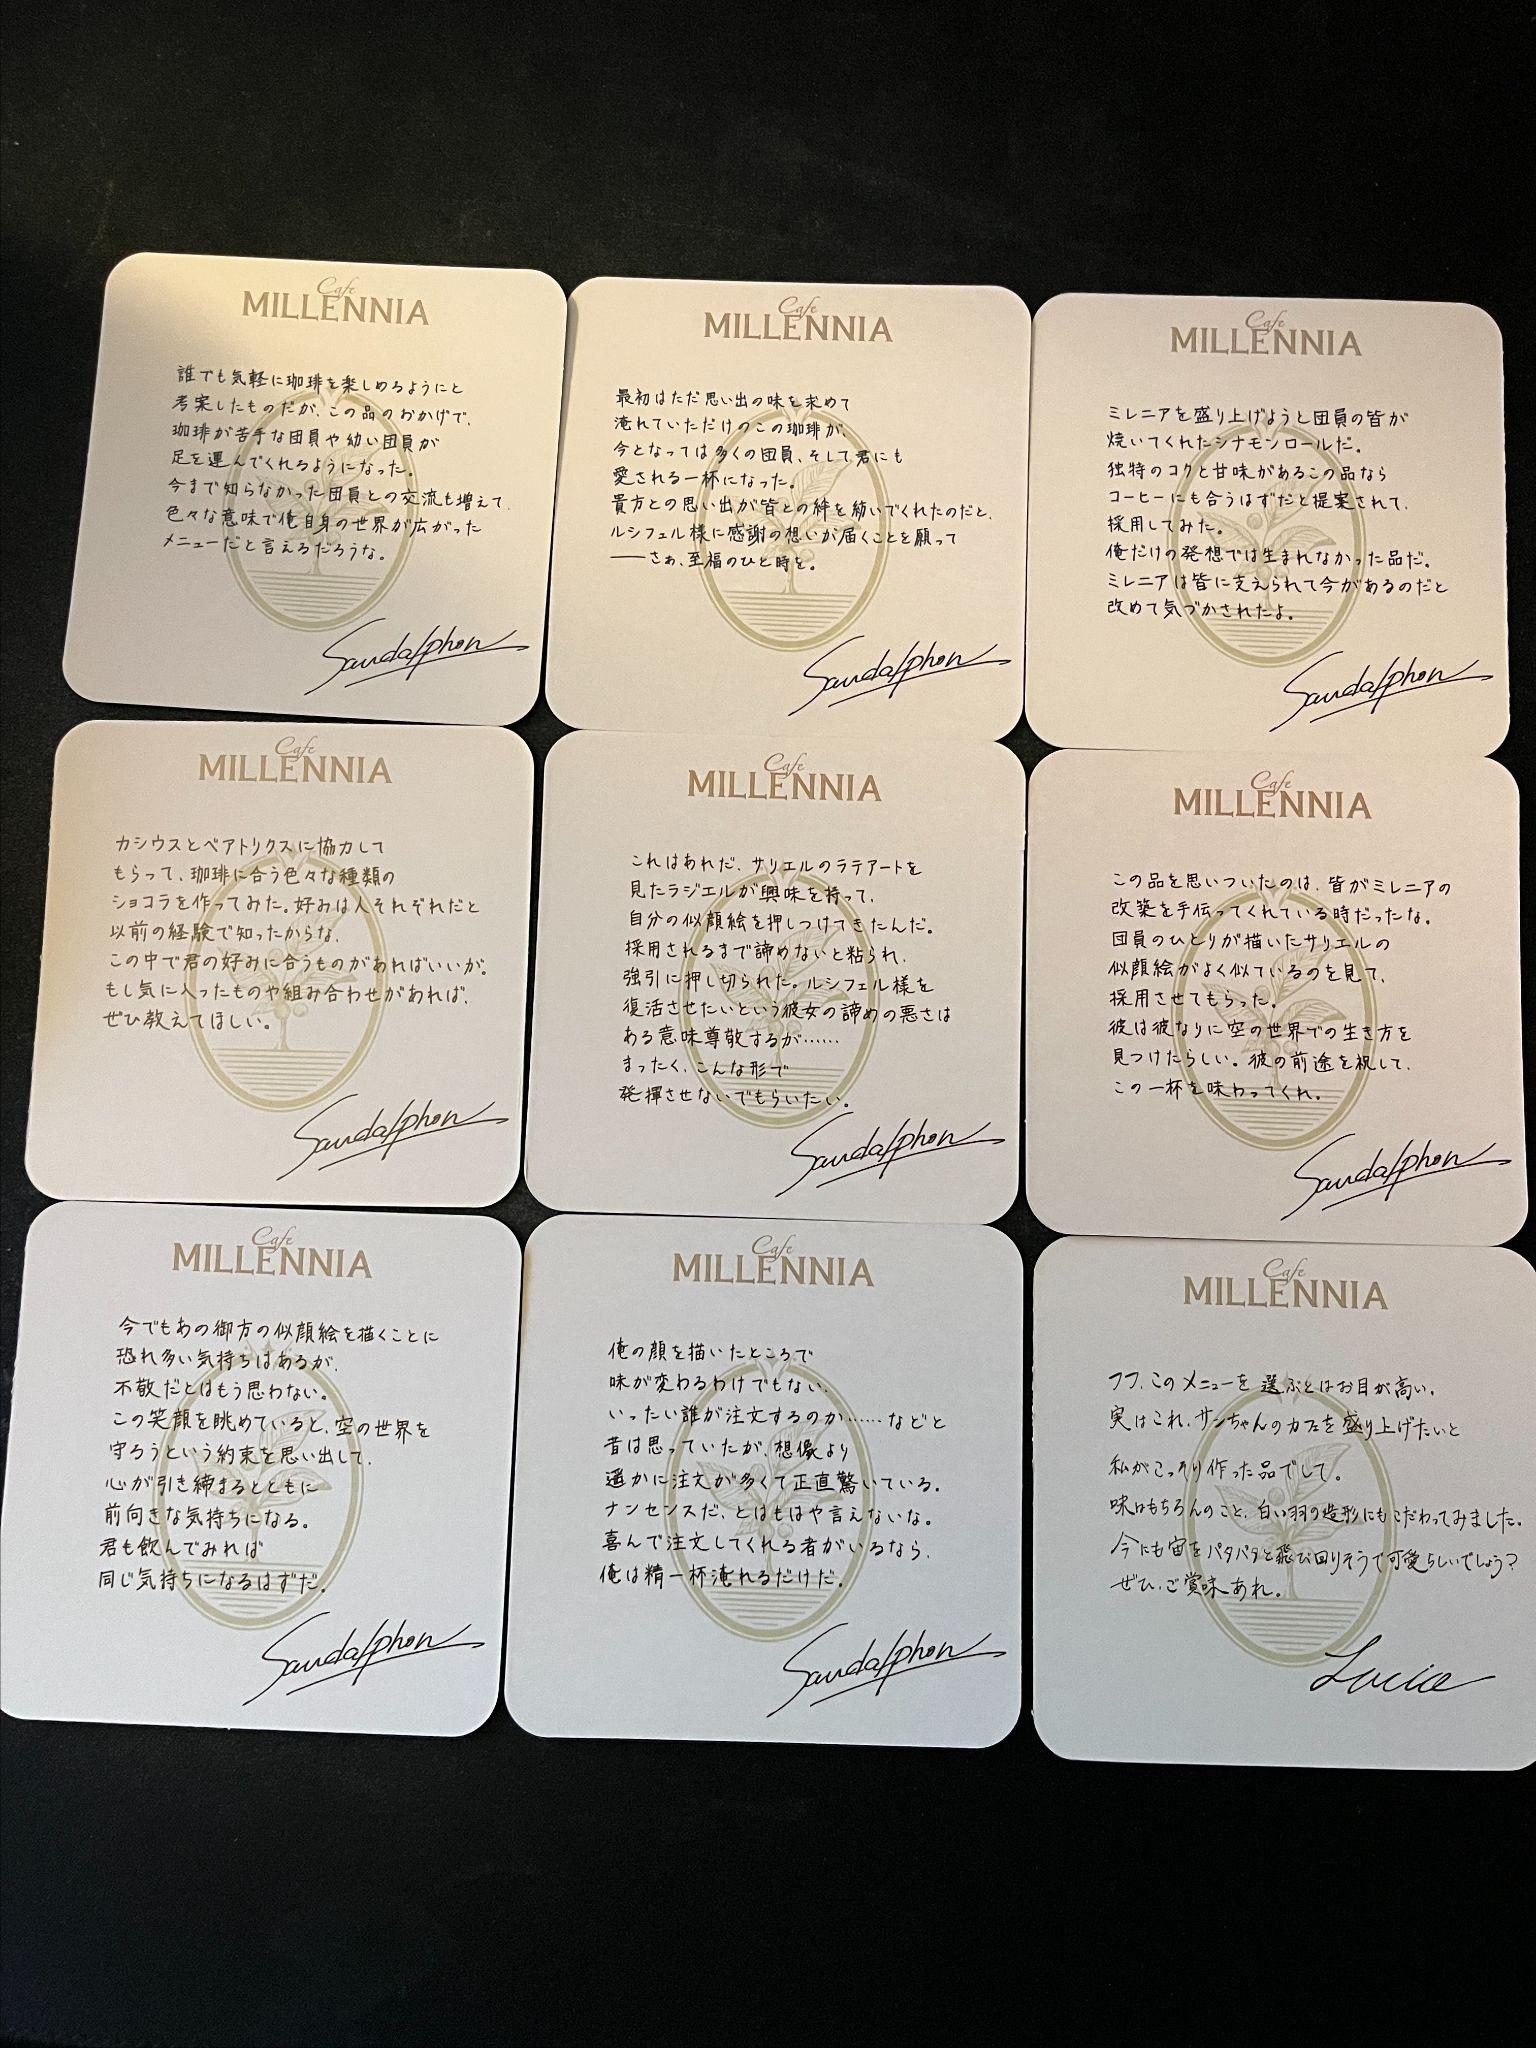 Cafe
MILLENNIA
誰でも気軽に珈琲を楽しめるようにと
考案したものだが、この品のおかげで、
珈琲が苦手な団員や幼い団員が
足を運んでくれるようになった。
今まで知らなかった団員との交流も増えて、
色々な意味で俺自身の世界が広がった
メニューだと言えるだろうな。
Sandalphon
Cafe
MILLENNIA
最初はただ思い出の味を求めて
淹れていただけのこの珈琲が、
今となっては多くの団員、そして君にも
愛される一杯になった。
貴方との思い出が皆との絆を紡いでくれたのだと、
ルシフェル様に感謝の想いが届くことを願って
――さぁ、至福のひと時を。
Sandalphon
Cafe
MILLENNIA
ミレニアを盛り上げようと団員の皆が
焼いてくれたシナモンロールだ。
独特のコクと甘味があるこの品なら
コーヒーにも合うはずだと提案されて、
採用してみた。
俺だけの発想では生まれなかった品だ。
ミレニアは皆に支えられて今があるのだと
改めて気づかされたよ。
Sandalphon
Cafe
MILLENNIA
カシウスとベアトリクスに協力して
もらって、珈琲に合う色々な種類の
ショコラを作ってみた。好みは人それぞれだと
以前の経験で知ったからな、
この中で君の好みに合うものがあればいいが。
もし気に入ったものや組み合わせがあれば、
ぜひ教えてほしい。
Sandalphon
Cafe
MILLENNIA
これはあれだ、サリエルのラテアートを
見たラジエルが興味を持って、
自分の似顔絵を押しつけてきたんだ。
採用されるまで諦めないと粘られ、
強引に押し切られた。ルシフェル様を
復活させたいという彼女の諦めの悪さは
ある意味尊敬するが……
まったく、こんな形で
発揮させないでもらいたい。
Sandalphon
Cafe
MILLENNIA
この品を思いついたのは、皆がミレニアの
改築を手伝ってくれている時だったな。
団員のひとりが描いたサリエルの
似顔絵がよく似ているのを見て、
採用させてもらった。
彼は彼なりに空の世界での生き方を
見つけたらしい。彼の前途を祝して、
この一杯を味わってくれ。
Sandalphon
Cafe
MILLENNIA
今でもあの御方の似顔絵を描くことに
恐れ多い気持ちはあるが、
不敬だとはもう思わない。
この笑顔を眺めていると、空の世界を
守ろうという約束を思い出して、
心が引き締まるとともに
前向きな気持ちになる。
君も飲んでみれば
同じ気持ちになるはずだ。
Sandalphon
Cafe
MILLENNIA
俺の顔を描いたところで
味が変わるわけでもない、
いったい誰が注文するのか……などと
昔は思っていたが、想像より
遥かに注文が多くて正直驚いている。
ナンセンスだ、とはもはや言えないな。
喜んで注文してくれる者がいるなら、
俺は精一杯淹れるだけだ。
Sandalphon
Cafe
MILLENNIA
フフ、このメニューを選ぶとはお目が高い。
実はこれ、サンちゃんのカフェを盛り上げたいと
私がこっそり作った品でして。
味はもちろんのこと、白い羽の造形にもこだわってみました。
今にも宙をパタパタと飛び回りそうで可愛らしいでしょう?
ぜひ、ご賞味あれ。
Lucio